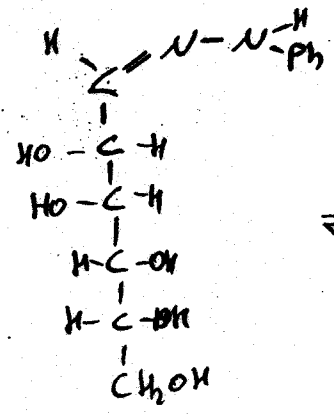 H
C=N-N-H
Ph
HO-C-H
HO-C-H
H-C-OH
H-C-OH
CH₂OH